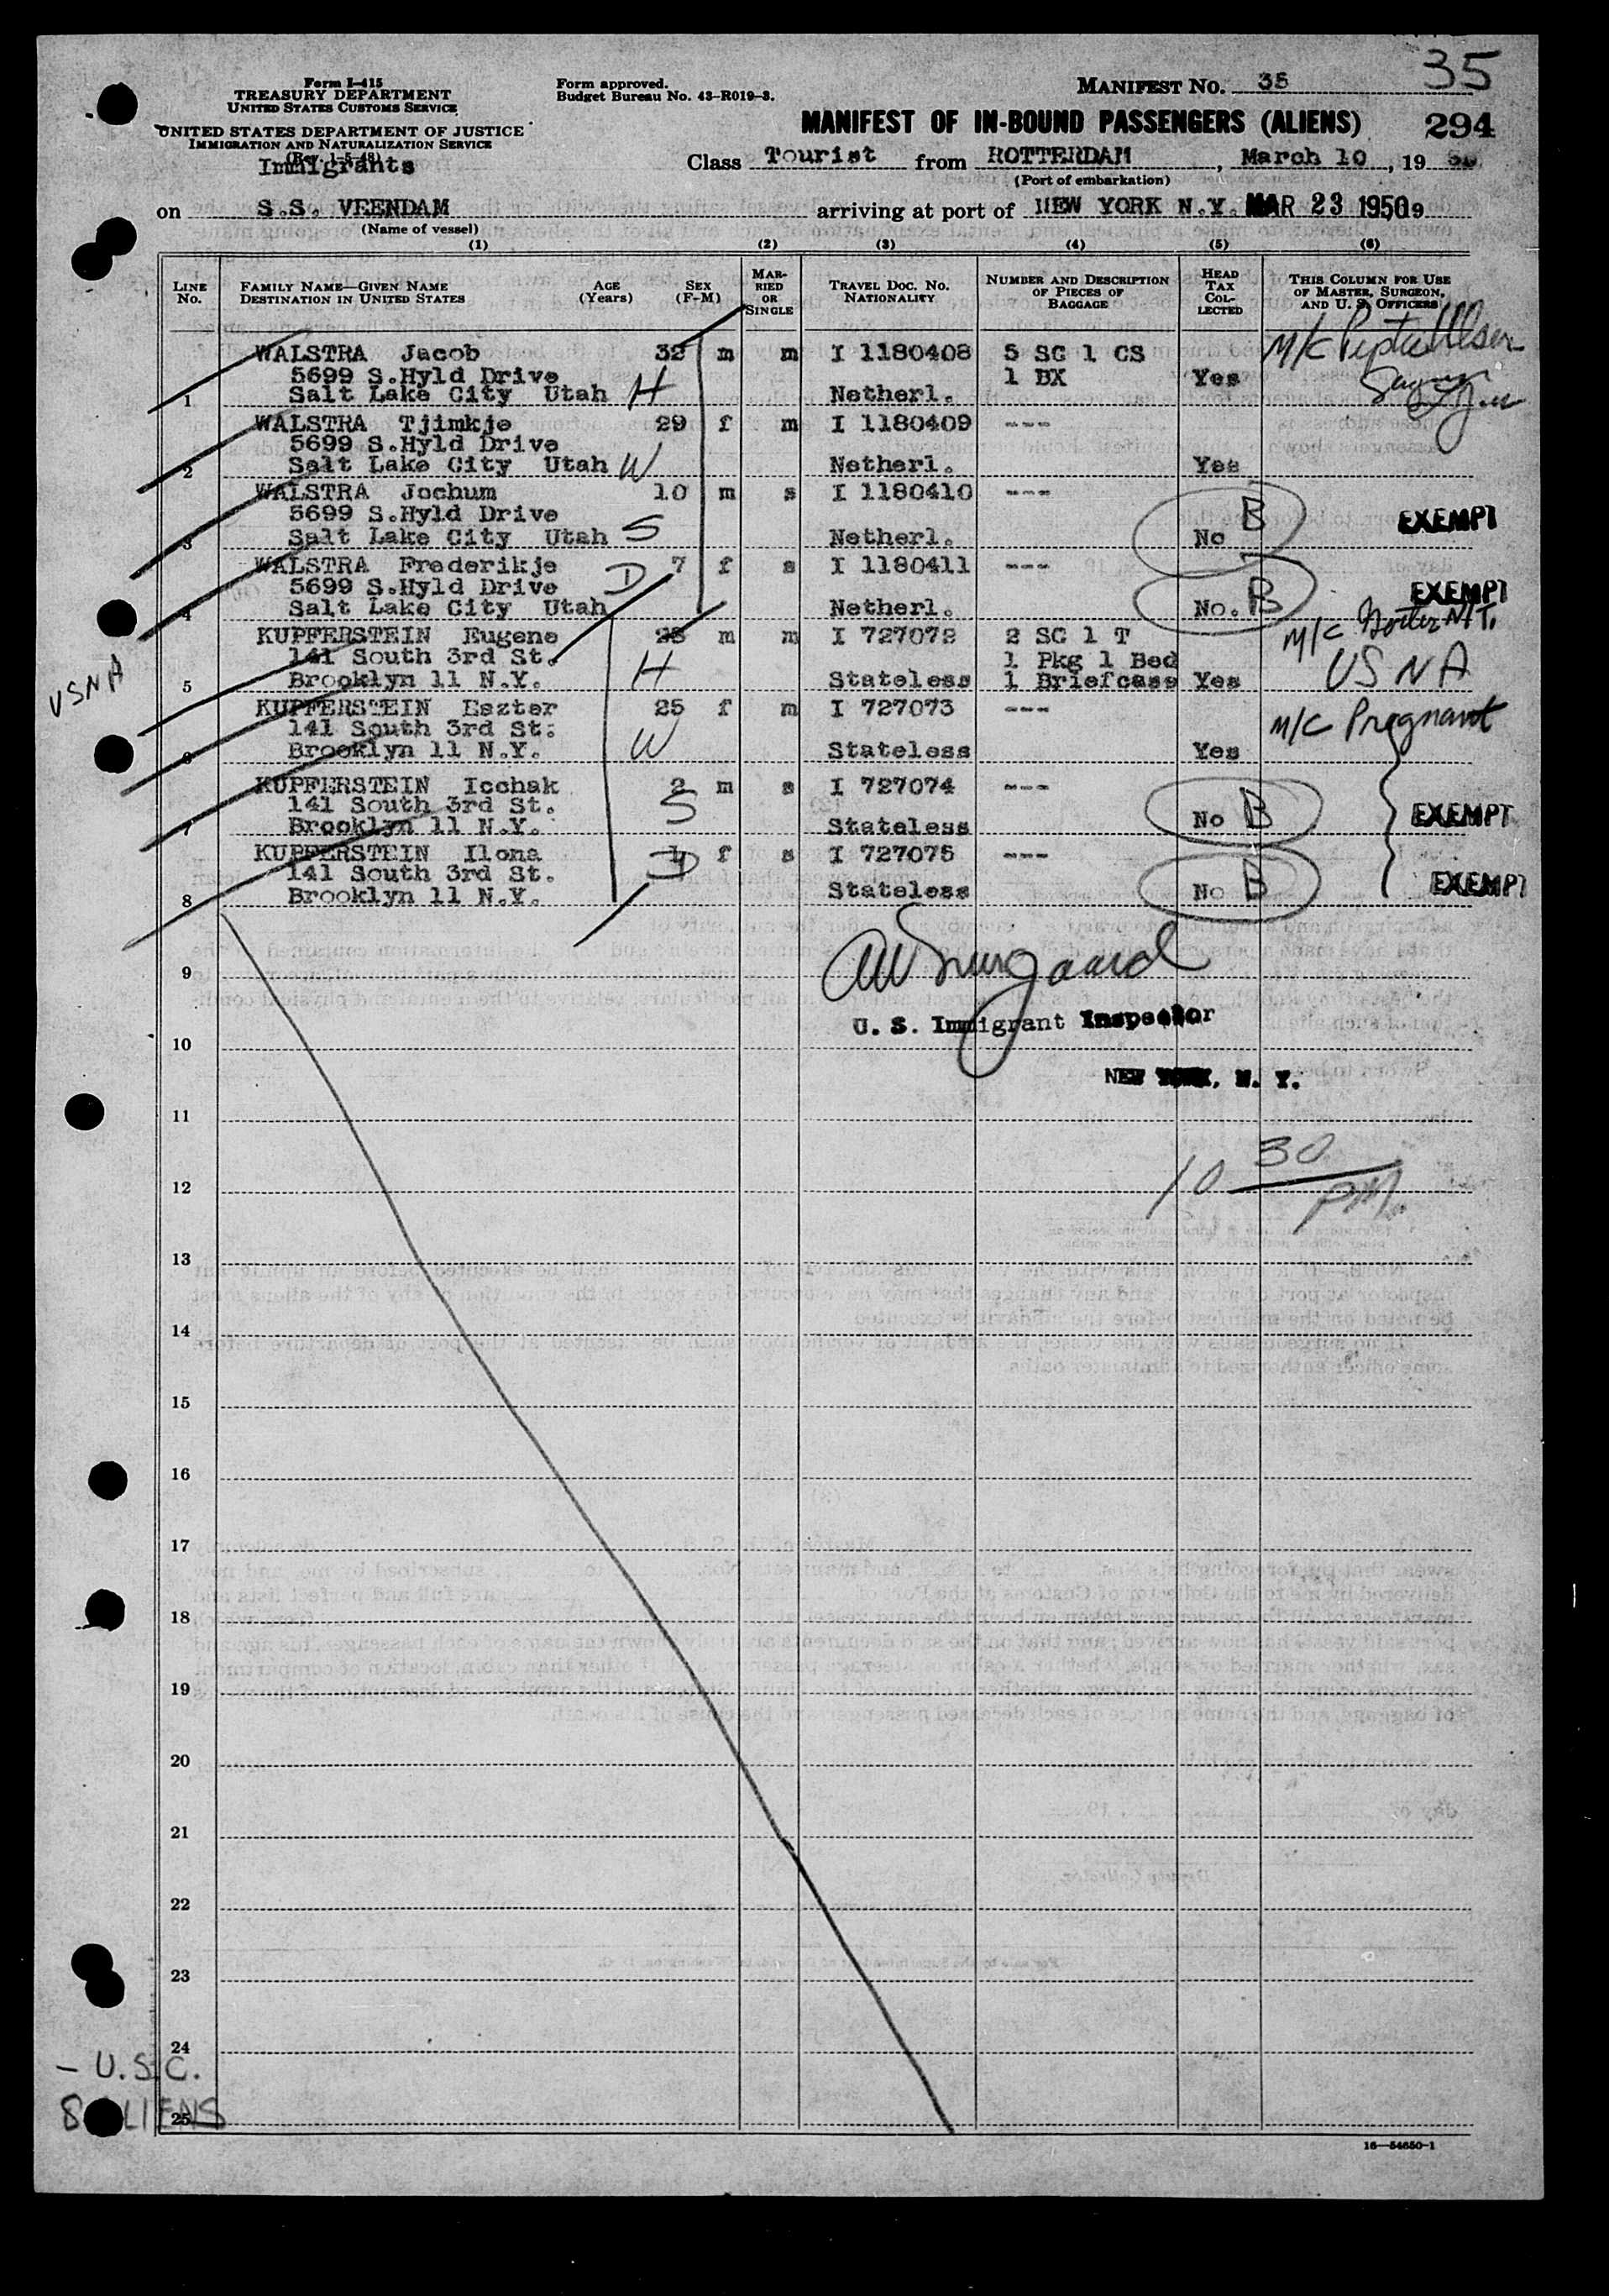 35
Form I-415
TREASURY DEPARTMENT
UNITED STATES CUSTOMS SERVICE
UNITED STATES DEPARTMENT OF JUSTICE
IMMIGRATION AND NATURALIZATION SERVICE
(Rev. 1-5-48)
Immigrants
Form approved.
Budget Bureau No. 43-R019-3.
MANIFEST NO. 35
MANIFEST OF IN-BOUND PASSENGERS (ALIENS) 294
Class Tourist from ROTTERDAM, March 10, 19 50
(Port of embarkation)
on S.S. VEENDAM arriving at port of NEW YORK N.Y. MAR 23 1950
(Name of vessel)
(1) (2) (3) (4) (5) (6)
LINE NO. FAMILY NAME—GIVEN NAME DESTINATION IN UNITED STATES AGE (Years) SEX (F-M) MARRIED OR SINGLE TRAVEL DOC. NO. NATIONALITY NUMBER AND DESCRIPTION OF PIECES OF BAGGAGE HEAD TAX COLLECTED THIS COLUMN FOR USE OF MASTER, SURGEON, AND U. S. OFFICERS
WALSTRA Jacob 32 m m I 1180408 5 SC 1 CS M/C
5699 S.Hyld Drive 1 BX Yes
1 Salt Lake City Utah H Netherl.
WALSTRA Tjimkje 29 f m I 1180409 ---
5699 S.Hyld Drive
2 Salt Lake City Utah W Netherl. Yes
WALSTRA Jochum 10 m s I 1180410 ---
5699 S.Hyld Drive B EXEMPT
3 Salt Lake City Utah S Netherl. No
WALSTRA Frederikje D 7 f s I 1180411 ---
5699 S.Hyld Drive EXEMPT
4 Salt Lake City Utah Netherl. No. B
KUPFERSTEIN Eugene 25 m m I 727072 2 SC 1 T M/C
141 South 3rd St. H 1 Pkg 1 Bed USNA
USNA 5 Brooklyn 11 N.Y. Stateless 1 Briefcase Yes
KUPFERSTEIN Eszter 25 f m I 727073 --- M/C Pregnant
141 South 3rd St.
6 Brooklyn 11 N.Y. W Stateless Yes
KUPFERSTEIN Icchak 2 m s I 727074 ---
141 South 3rd St. S
7 Brooklyn 11 N.Y. Stateless No B EXEMPT
KUPFERSTEIN Ilona 1 f s I 727075 ---
141 South 3rd St. D
8 Brooklyn 11 N.Y. Stateless No B EXEMPT
9
U. S. Immigrant Inspector
10
NEW YORK, N. Y.
11
10 30 PM.
12
13
14
15
16
17
18
19
20
21
22
23
24
- U.S.C.
8 ALIENS
25
16—54650-1